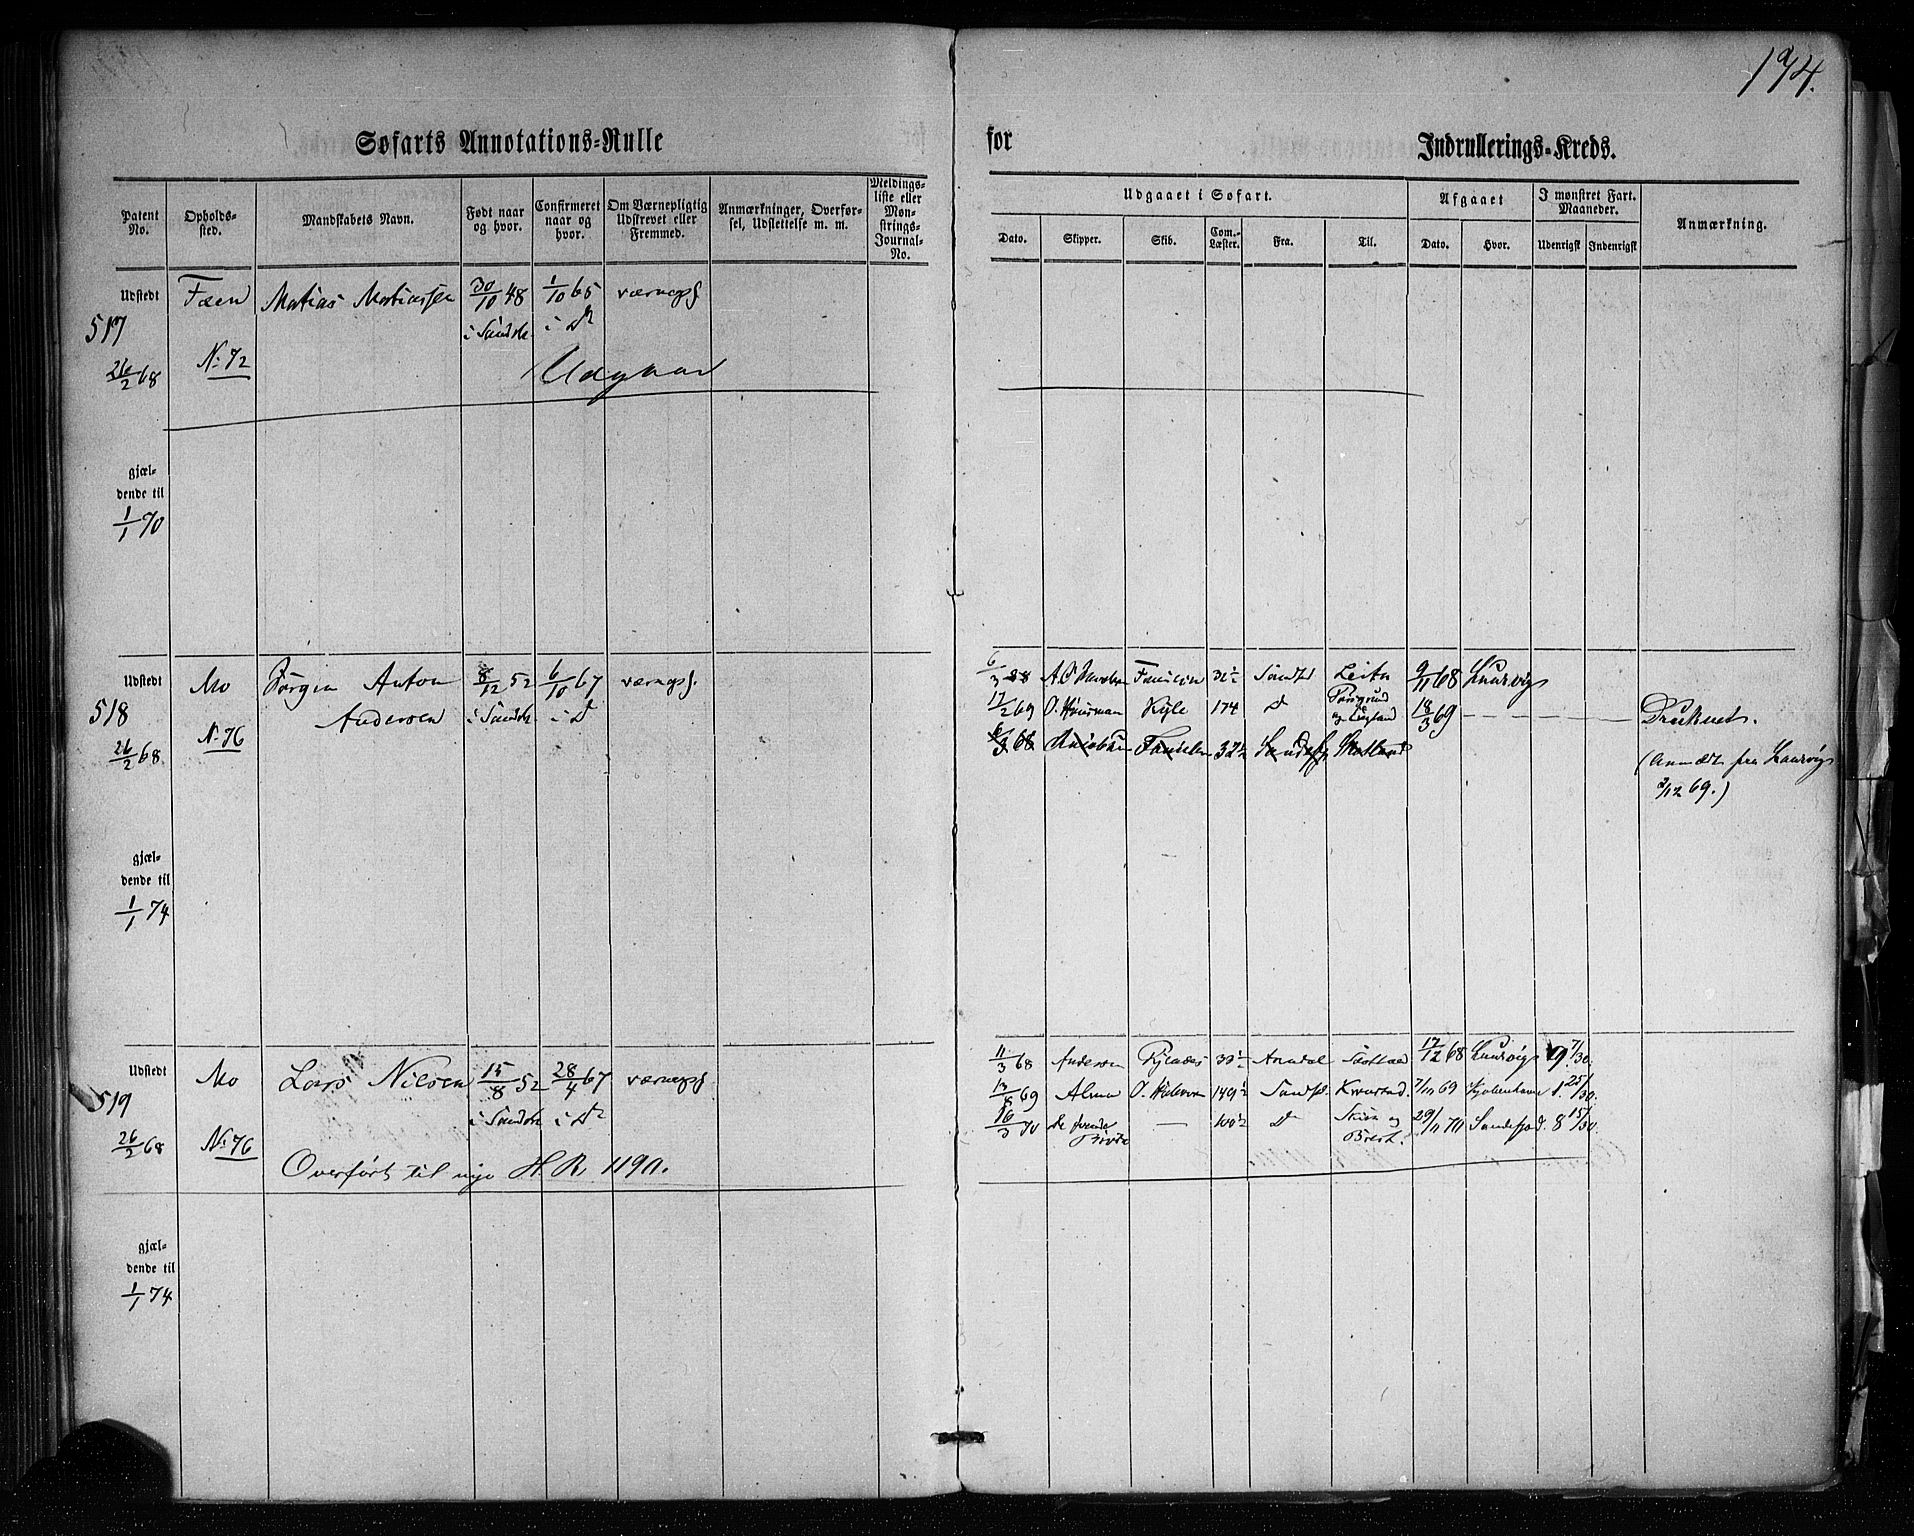 194.
Søfarts Annotations-Rulle for Indrullerings-Kreds.
Patent No.
Opholds-sted.
Mandskabets Navn.
Født naar og hvor.
Confirmeret naar og hvor.
Om Værnepligtig Udskrevet eller Fremmed.
Anmærkninger, Overførsel, Udslettelse m. m.
Meldingsliste eller Mønstrings-Journal-No.
Udgaaet i Søfart.
Dato. Skipper. Skib. Com.-Læster. Fra. Til.
Afgaaet
Dato. Hvor.
I mønstret Fart. Maaneder.
Udenrigst Indenrigst
Anmærkning.
Udstedt
517
26/2 68
Fæen
No 72
Matias Matiassen
30/10 48
i Sandeh.
1/10 65
i Do
værnepl
Udgaar
gjæl-
dende til
1/1 70
Udstedt
518
26/2 68
Mo
No 76
Jørgen Anton
Andersen
8/12 52
i Sandeh.
6/10 67
i Do
værnepl.
6/3 68 Sandefd Leith 9/11 68 Laurvig
17/2 69 Kyle 174 Do Porsgrund og England 18/3 69
6/3 68 32½ Sandefj. Skotland
Druknet.
(Anmeldt fra Laurvig
2/12 69.)
gjæl-
dende til
1/1 74
Udstedt
519
26/2 68
Mo
No 76
Lars Nilsen
15/8 52
i Sandeh
28/4 67
i Do
værnepl
11/3 68 Andersen Pylades 30½ Arendal Skotland 17/12 68 Laurvig 9. 7/30.
13/8 69 Alma 149½ Sandefd. Kronstad. 7/11 69 Kjøbenhavn 1. 25/30.
16/3 70 De fvende Brødre — 100½ Do og Brest. 29/11 70 Sandefjord. 8 15/30.
Overført til nye H. R. 1190.
gjæl-
dende til
1/1 74